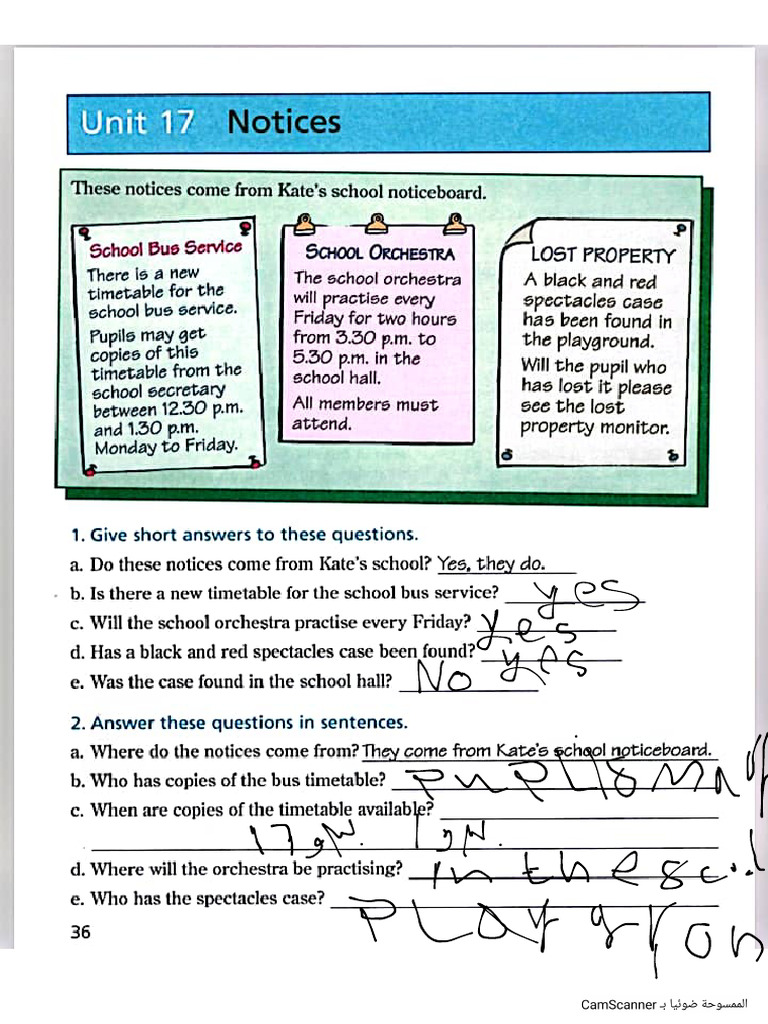 Unit 17 Notices
These notices come from Kate's school noticeboard.
School Bus Service
There is a new
timetable for the
school bus service.
Pupils may get
copies of this
timetable from the
school secretary
between 12.30 p.m.
and 1.30 p.m.
Monday to Friday.
SCHOOL ORCHESTRA
The school orchestra
will practise every
Friday for two hours
from 3.30 p.m. to
5.30 p.m. in the
school hall.
All members must
attend.
LOST PROPERTY
A black and red
spectacles case
has been found in
the playground.
Will the pupil who
has lost it please
see the lost
property monitor.
1. Give short answers to these questions.
a. Do these notices come from Kate's school? Yes, they do.
b. Is there a new timetable for the school bus service? yes
c. Will the school orchestra practise every Friday? yes
d. Has a black and red spectacles case been found? yes
e. Was the case found in the school hall? No
2. Answer these questions in sentences.
a. Where do the notices come from? They come from Kate's school noticeboard.
b. Who has copies of the bus timetable?
c. When are copies of the timetable available?
d. Where will the orchestra be practising? in the
e. Who has the spectacles case?
36
الممسوحة ضوئيا بـ CamScanner